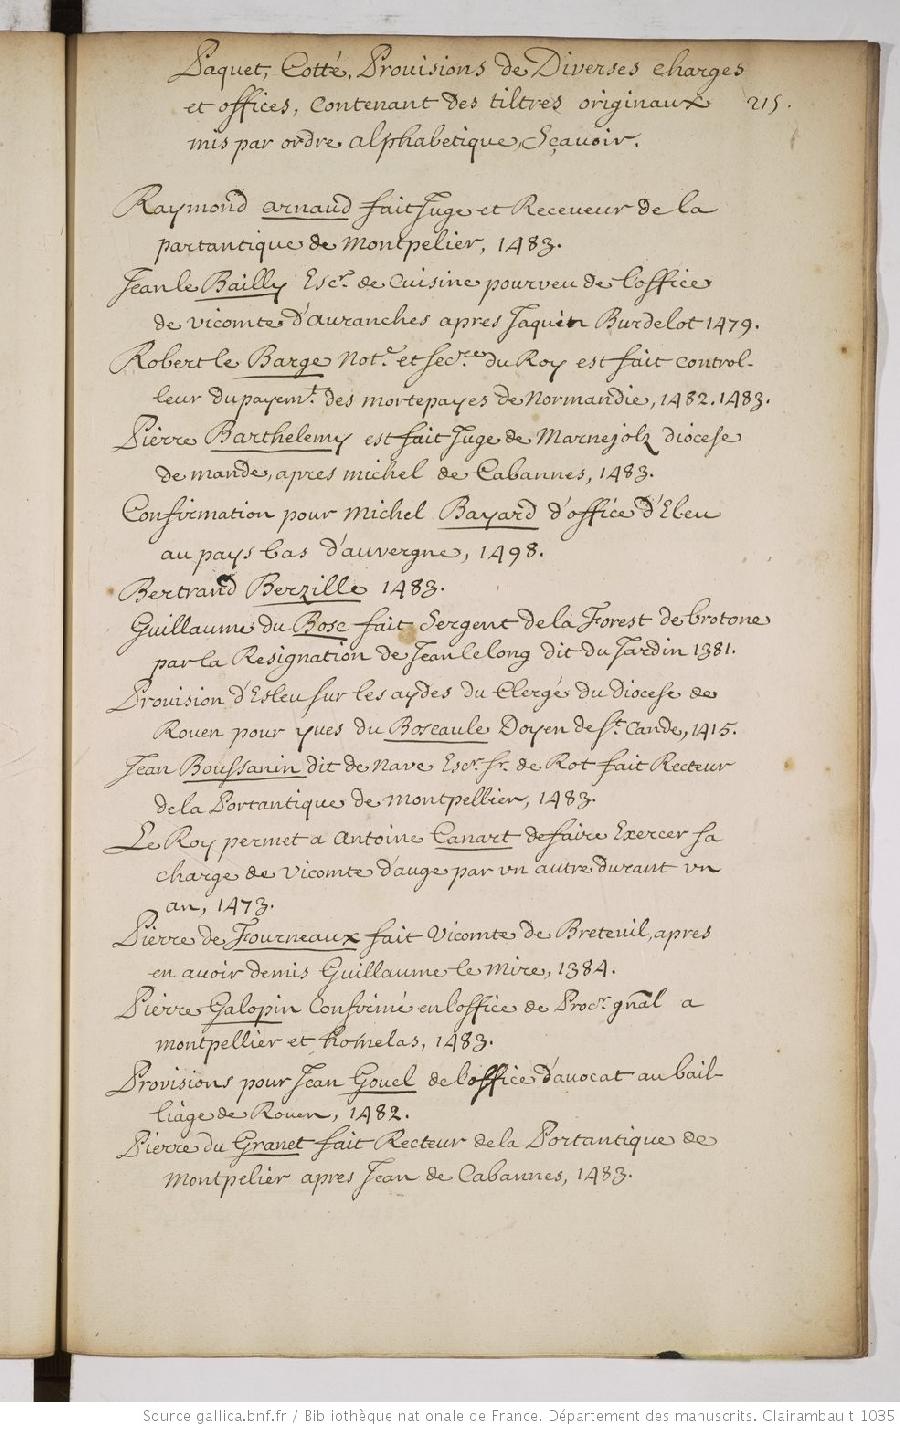 Paquet, Cotté, Provisions de Diverses charges
et offices, contenant des tiltres originaux
215.
mis par ordre alphabetique, Sçavoir.
Raymond arnaud fait Juge et Receveur de la
partantique de Montpelier, 1483.
Jean le Bailly Escr. de Cuisine pourveu de l'office
de vicomte d'auranches apres Jaquin Burdelot 1479.
Robert le Barge Notre. et secre. du Roy est fait control-
leur du payemt. des mortepayes de Normandie, 1482. 1483.
Pierre Barthelemy est fait Juge de Marnejolz diocese
de mande, apres michel de Cabannes, 1483.
Confirmation pour Michel Bayard d'office d'Eleu
au pays bas d'auvergne, 1498.
Bertrand Berzille 1483.
Guillaume du Bosc fait Sergent de la Forest de brotone
par la Resignation de Jean le long dit du Jardin 1381.
Provision d'Esleu sur les aydes du Clergé du diocese de
Rouen pour yves du Boscaule Doyen de St. Cande, 1415.
Jean Boussanin dit de Nave Escr. sr. de Rot fait Recteur
de la Portantique de Montpellier, 1483.
Le Roy permet a Antoine Canart de faire Exercer sa
charge de Vicomte d'auge par vn autre durant vn
an, 1473.
Pierre de Fourneaux fait Vicomte de Breteuil, apres
en avoir demis Guillaume le Mire, 1384.
Pierre Galopin Confirmé en l'office de Procr. gnãl a
montpellier et homelas, 1483.
Provisions pour Jean Gouel de l'office d'avocat au bail-
liage de Rouen, 1482.
Pierre du Granet fait Recteur de la Portantique de
Montpelier apres Jean de Cabannes, 1483.
Source gallica.bnf.fr / Bibliothèque nationale de France. Département des manuscrits. Clairambault 1035